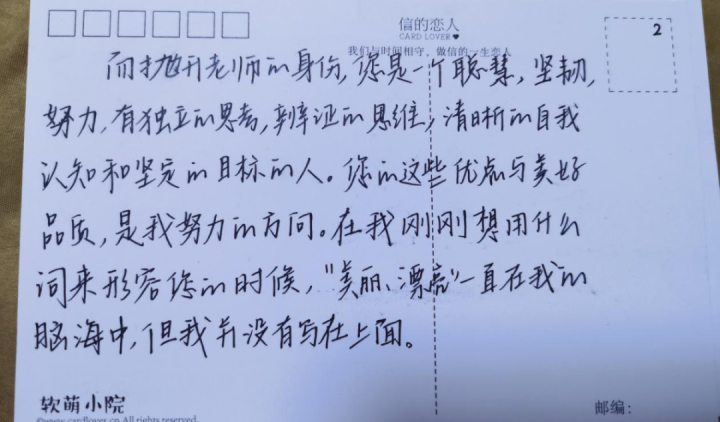 信的恋人
CARD LOVER♥
我们与时间相守,做信的一生恋人
2
而抛开老师的身份,您是一个聪慧,坚韧,
努力,有独立的思考,辨证的思维,清晰的自我
认知和坚定的目标的人。您的这些优点与美好
品质,是我努力的方向。在我刚刚想用什么
词来形容您的时候,"美丽、漂亮"一直在我的
脑海中,但我并没有写在上面。
软萌小院
©www.cardlover.cn All rights reserved
邮编: